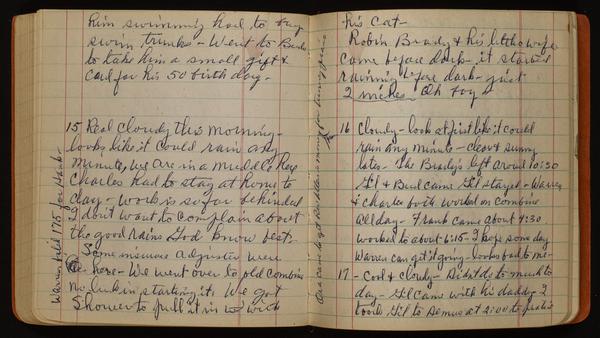 him swimming had to buy
swim trunks - Went to Buds
to take him a small gift &
card for his 50 birthday -
15 Real cloudy this morning -
looks like it could rain any
minute, we are in a muddle here
Charles had to stay at home to
day - work is so far behind
I don't want to complain about
the good rains God know best.
Some insurance adjuster were
here - We went over to old combine
no luck in starting it. We got
Shower to pull it in w/ with
Warren held 175 for Hunter
his cat -
Robin Brady & his little wife
came before dark - it started
raining before dark - just
2 inches Oh boy
16 Cloudy - look at first like it could
rain any minute - clear & sunny
later - The Brady's left around 10:30
Gil & Bud came Gil stayed - Warren
& Charles both worked on combine
All day - Frank came about 4:30
worked to about 6:15 - I hope some day
Warren can get it going - looks bad to me -
17 - Cool & cloudy - Didn't do much to
day - Gil came with his daddy - I
took Gil to Demus at 2:00 to